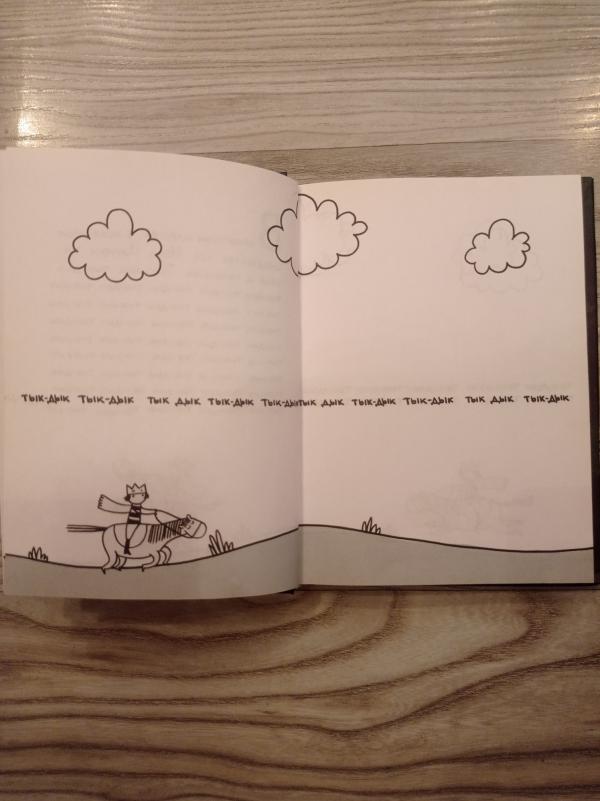 тык-дык тык-дык тык дык тык-дык тык-дык тык дык тык-дык тык-дык тык дык тык-дык